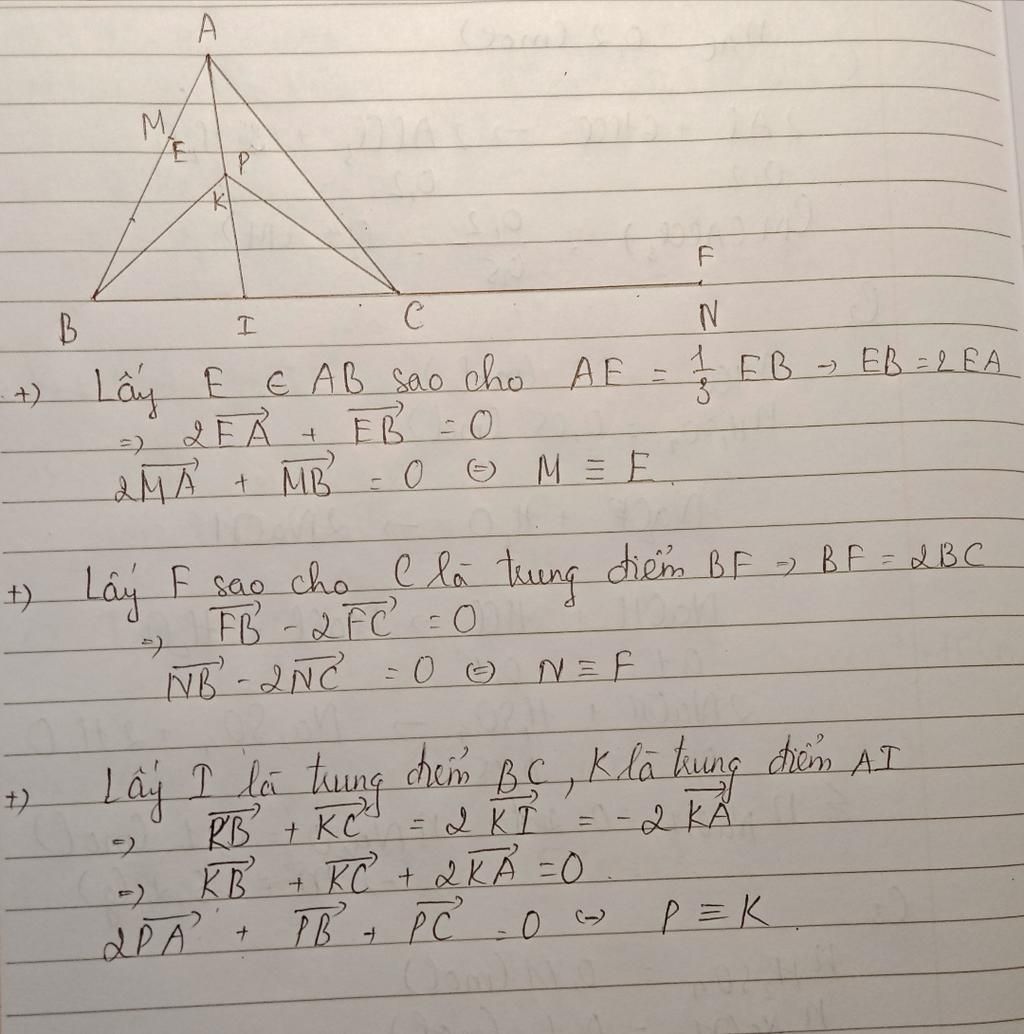 A
M
E
P
K
F
B
I
C
N
+) Lấy E ∈ AB sao cho AE = 1/3 EB → EB = 2EA
=) 2EA→ + EB→ = 0
2MA→ + MB→ = 0 (=) M ≡ E
+) Lấy F sao cho C là trung điểm BF => BF = 2BC
=) FB→ - 2FC→ = 0
NB→ - 2NC→ = 0 (=) N ≡ F
+) Lấy I là trung điểm BC, K là trung điểm AI
=) KB→ + KC→ = 2KI→ = -2KA→
=) KB→ + KC→ + 2KA→ = 0.
2PA→ + PB→ + PC→ = 0 (=) P ≡ K.